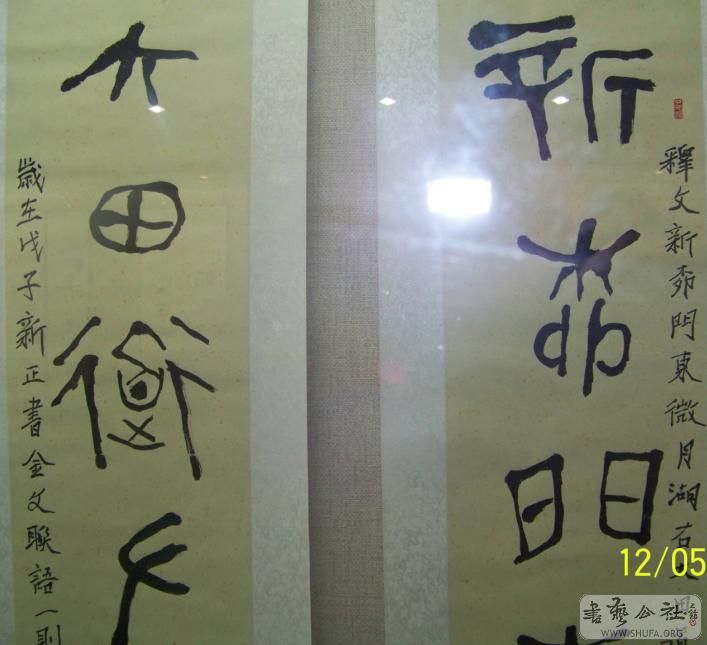 釋文新桺門東微月湖右大田
新桺門
大田
歲在戊子新正書金文聯語一則
12/05
書藝公社
WWW.SHUFA.ORG